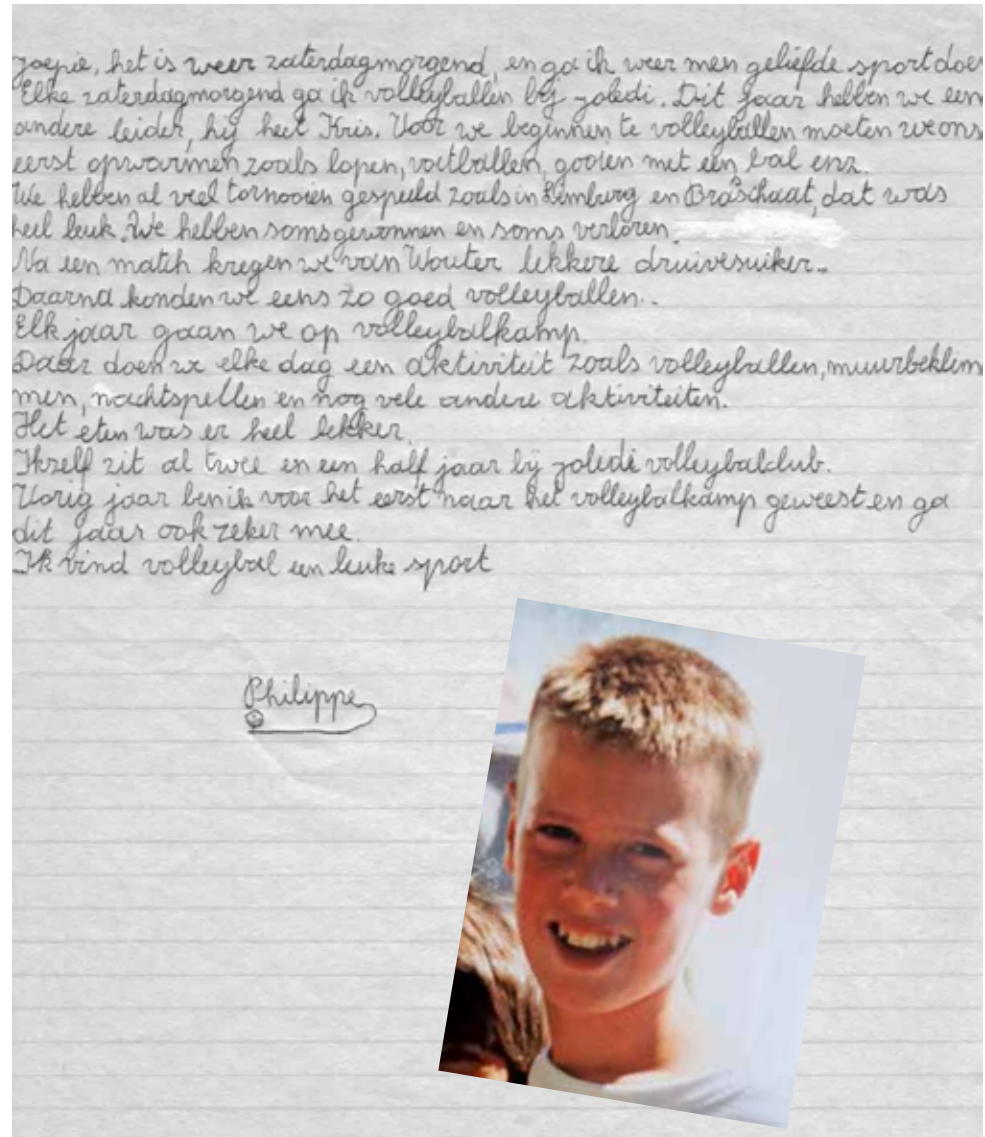 Joepie, het is weer zaterdagmorgend, en ga ik weer men geliefde sport doen
Elke zaterdagmorgend ga ik volleyballen bij Joledi. Dit jaar hebben we een
andere leider, hij heet Kris. Voor we beginnen te volleyballen moeten we ons
eerst opwarmen zoals lopen, voetballen, gooien met een bal enz.
We hebben al veel tornooien gespeeld zoals in Limburg en Braschaat, dat was
heel leuk. We hebben soms gewonnen en soms verloren.
Na een match kregen we van Wouter lekkere druivesuiker..
Daarna konden we eens zo goed volleyballen..
Elk jaar gaan we op volleybalkamp.
Daar doen we elke dag een aktiviteit zoals volleyballen, muurbeklim
men, nachtspellen en nog vele andere aktiviteiten.
Het eten was er heel lekker.
Ikzelf zit al twee en een half jaar bij Joledi volleybalclub.
Vorig jaar ben ik voor het eerst naar het volleybalkamp geweest en ga
dit jaar ook zeker mee.
Ik vind volleybal een leuke sport
Philippe